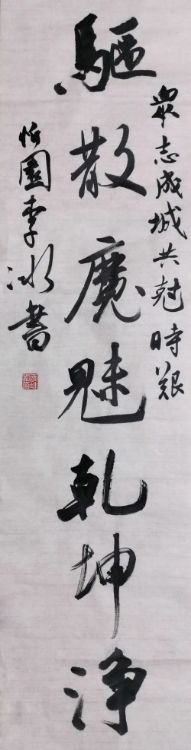 眾志成城共尅時艱
驅散魔魅乾坤淨
怡園李冰書